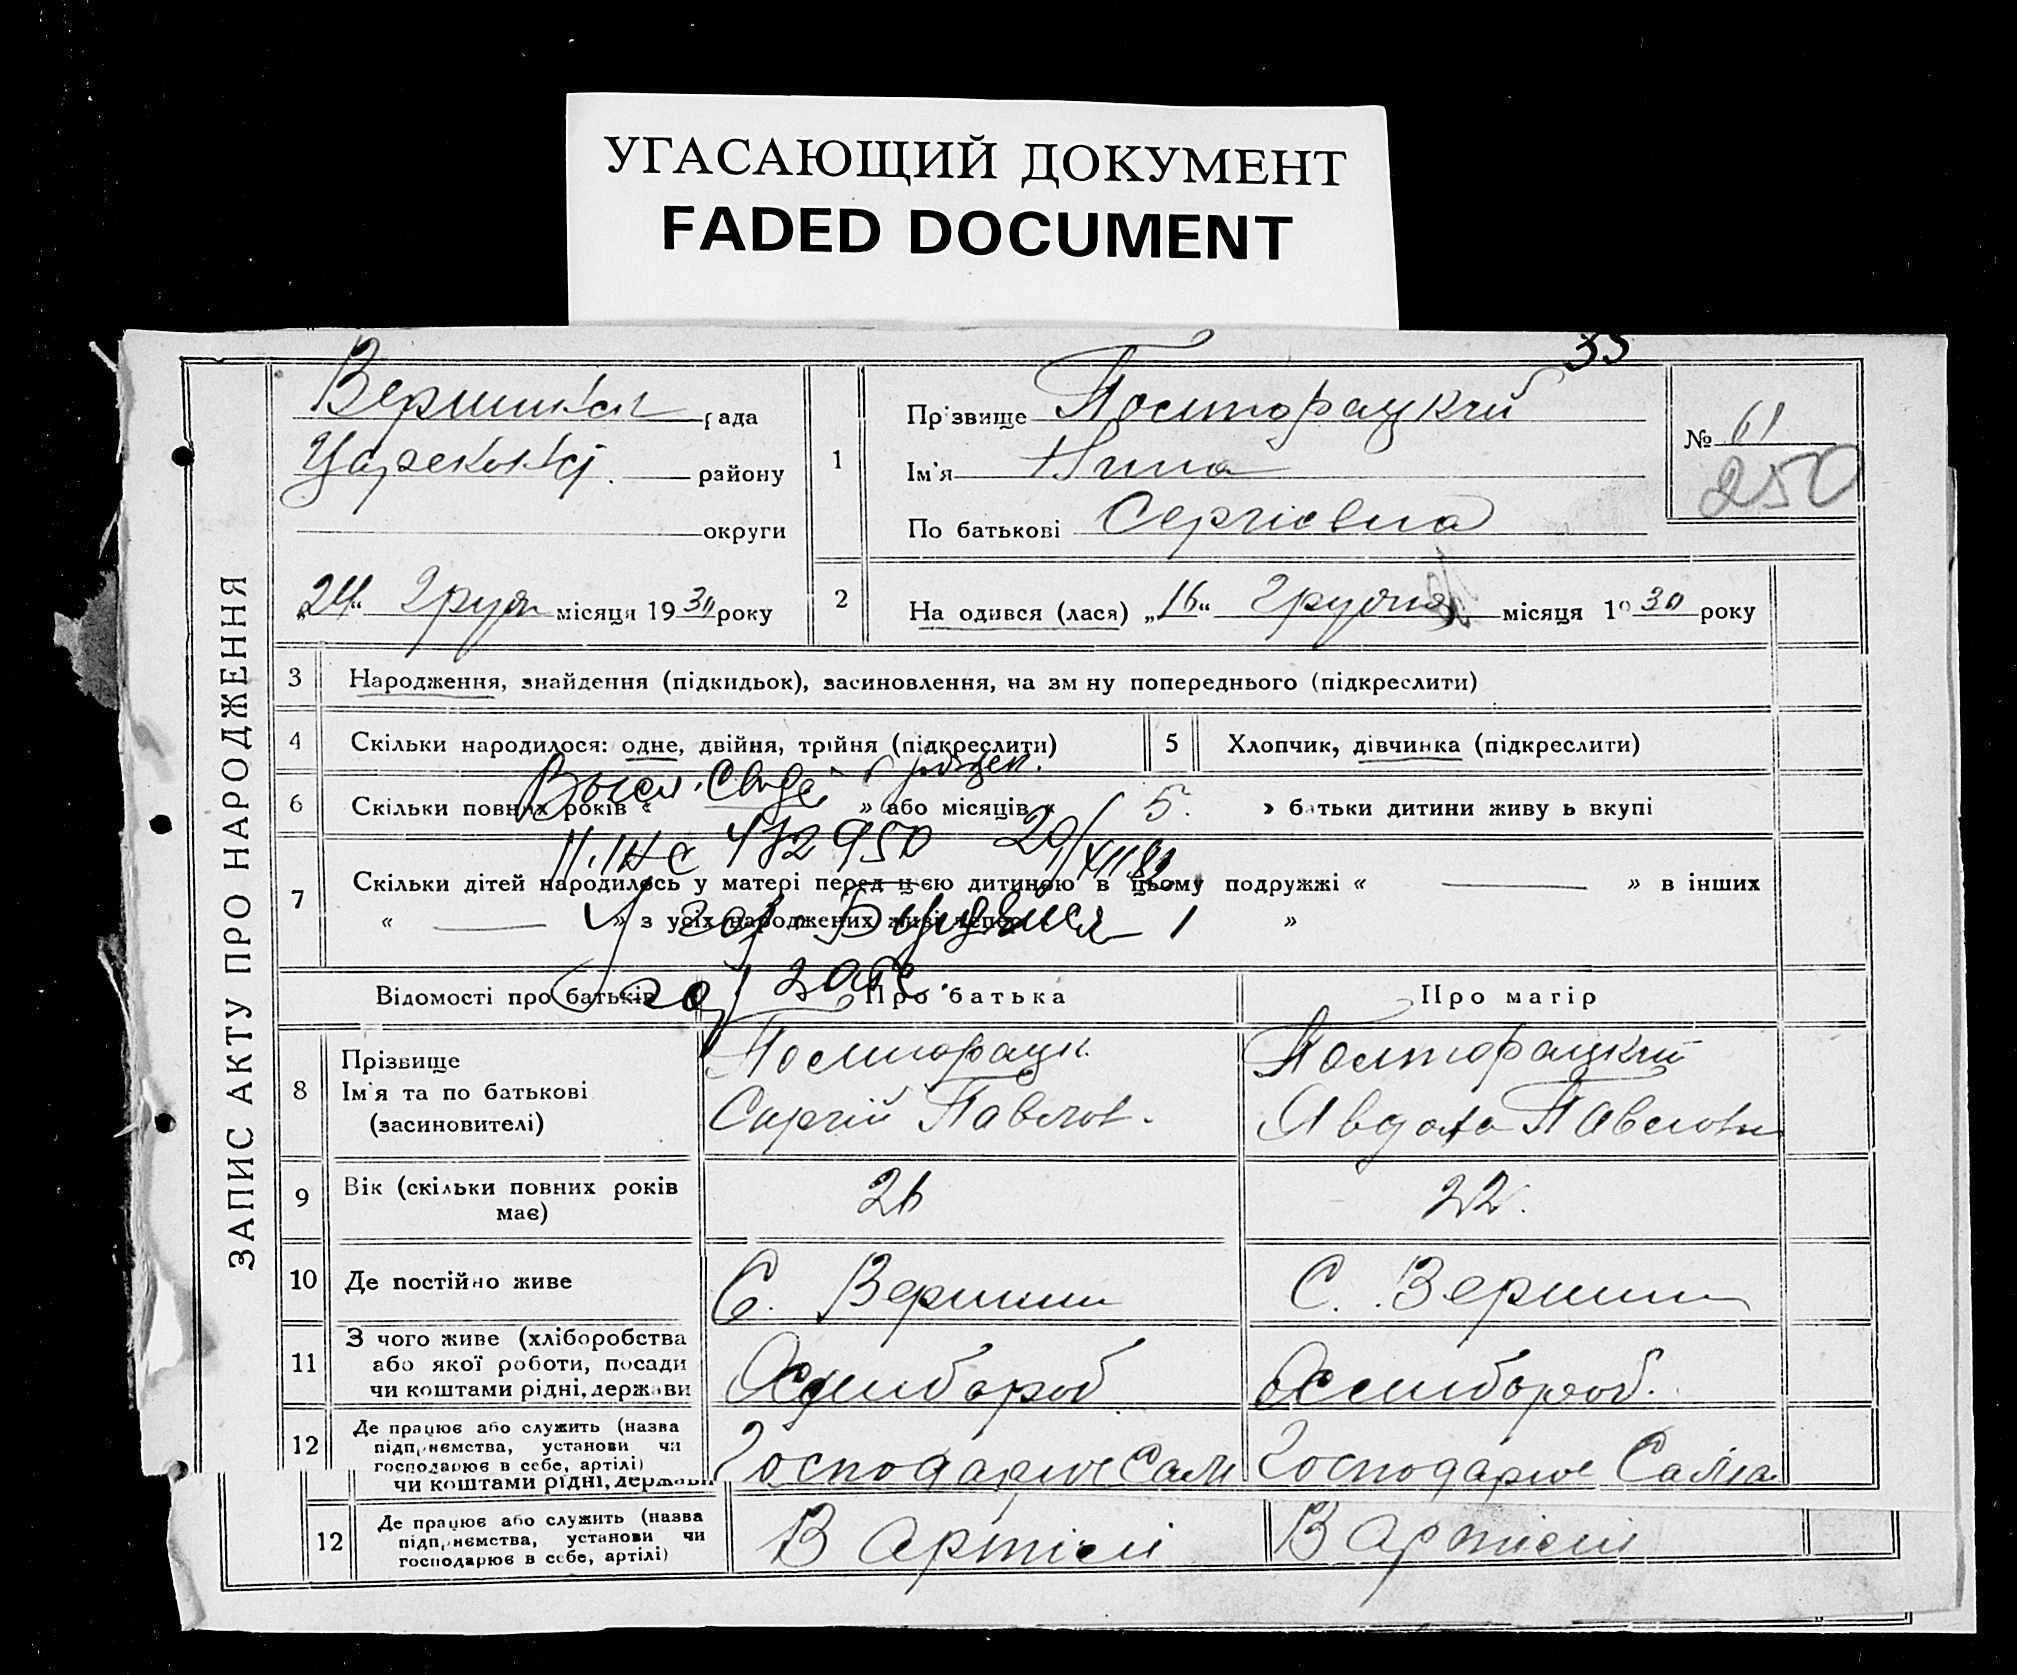 УГАСАЮЩИЙ ДОКУМЕНТ
FADED DOCUMENT
ЗАПИС АКТУ ПРО НАРОДЖЕННЯ
35
рада
району
округи
„24“ Груд місяця 1930 року
1
Прізвище Полторацкий
Ім'я Нина
По батькові Сергієвна
№ 61
250
2 На одився (лася) „16“ Грудня місяця 1930 року
3 Народження, знайдення (підкидьок), засиновлення, на зм ну попереднього (підкреслити)
4 Скільки народилося: одне, двійня, трійня (підкреслити)
5 Хлопчик, дівчинка (підкреслити)
6 Скільки повних років « » або місяців « 5. » батьки дитини живу ь вкупі
20/XII 82
7 Скільки дітей народилось у матері перед цією дитиною в цьому подружжі « — » в інших
« — » з усіх народжених живі тепер 1 »
Відомості про батьків Про батька Про матір
8 Прізвище
Ім'я та по батькові
(засиновителі)
Полторацк.
Сергій Павлов.
Полторацкий
Явдоха Павловн
9 Вік (скільки повних років
має)
26
22.
10 Де постійно живе
С. Вершин
С. Вершин
11 З чого живе (хліборобства
або якої роботи, посади
чи коштами рідні, держави
Хлибороб
Хлибороб.
12 Де працює або служить (назва
підприємства, установи чи
господарює в себе, артілі)
Господарює Сам
Господарює Сама
чи коштами рідні, держави
12 Де працює або служить (назва
підприємства, установи чи
господарює в себе, артілі)
В Артілі
В Артілі